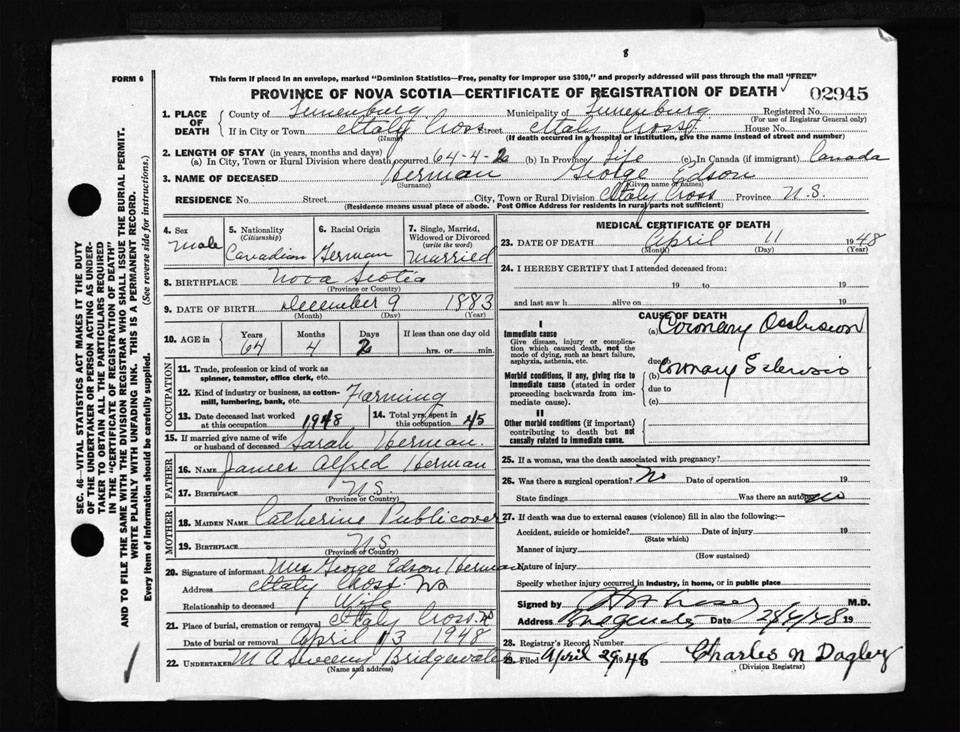 8
FORM 6
This form if placed in an envelope, marked "Dominion Statistics—Free, penalty for improper use $300," and properly addressed will pass through the mail "FREE"
PROVINCE OF NOVA SCOTIA—CERTIFICATE OF REGISTRATION OF DEATH 02945
1. PLACE OF DEATH County of Lunenburg Municipality of Lunenburg Registered No.
(For use of Registrar General only)
If in City or Town Italy Cross Street Italy Cross House No.
(Name) (If death occurred in a hospital or institution, give the name instead of street and number)
2. LENGTH OF STAY (in years, months and days)
(a) In City, Town or Rural Division where death occurred 64-4-2 (b) In Province Life (c) In Canada (if immigrant) Canada
3. NAME OF DECEASED Herman George Edson
(Surname) (Given name or names)
RESIDENCE No. Street City, Town or Rural Division Italy Cross Province N.S.
(Residence means usual place of abode. Post Office Address for residents in rural parts not sufficient)
4. Sex Male
5. Nationality (Citizenship) Canadian
6. Racial Origin German
7. Single, Married, Widowed or Divorced (write the word) Married
8. BIRTHPLACE Nova Scotia
(Province or Country)
9. DATE OF BIRTH December 9 1883
(Month) (Day) (Year)
10. AGE in Years Months Days If less than one day old
64 4 2 hrs. or min.
OCCUPATION
11. Trade, profession or kind of work as spinner, teamster, office clerk, etc.
12. Kind of industry or business, as cotton-mill, lumbering, bank, etc. Farming
13. Date deceased last worked at this occupation 1948
14. Total yrs. spent in this occupation 45
15. If married give name of wife or husband of deceased Sarah Herman.
FATHER
16. Name James Alfred Herman
17. Birthplace N.S.
(Province or Country)
MOTHER
18. Maiden Name Catherine Publicover
19. Birthplace N.S.
(Province or Country)
20. Signature of informant Mrs George Edson Herman
Address Italy Cross. NS
Relationship to deceased Wife
21. Place of burial, cremation or removal Italy Cross. NS
Date of burial or removal April 13 1948
22. Undertaker M A Sweeny Bridgewater
(Name and address)
MEDICAL CERTIFICATE OF DEATH
23. DATE OF DEATH April 11 1948
(Month) (Day) (Year)
24. I HEREBY CERTIFY that I attended deceased from:
19 to 19
and last saw h alive on 19
CAUSE OF DEATH
I
Immediate cause
Give disease, injury or complication which caused death, not the mode of dying, such as heart failure, asphyxia, asthenia, etc.
(a) Coronary Occlusion
due to
Morbid conditions, if any, giving rise to immediate cause (stated in order proceeding backwards from immediate cause).
(b) Coronary Sclerosis
due to
(c)
II
Other morbid conditions (if important) contributing to death but not causally related to immediate cause.
25. If a woman, was the death associated with pregnancy?
26. Was there a surgical operation? No Date of operation 19
State findings Was there an autopsy no
27. If death was due to external causes (violence) fill in also the following:—
Accident, suicide or homicide? Date of injury 19
(State which)
Manner of injury
(How sustained)
Nature of injury
Specify whether injury occurred in industry, in home, or in public place
Signed by M.D.
Address Date 28/4/48 19
28. Registrar's Record Number
29. Filed April 29 1948 Charles N Dagley
(Division Registrar)
SEC. 46—VITAL STATISTICS ACT MAKES IT THE DUTY
OF THE UNDERTAKER OR PERSON ACTING AS UNDER-
TAKER TO OBTAIN ALL THE PARTICULARS REQUIRED
IN THE "CERTIFICATE OF REGISTRATION OF DEATH"
AND TO FILE THE SAME WITH THE DIVISION REGISTRAR WHO SHALL ISSUE THE BURIAL PERMIT.
WRITE PLAINLY WITH UNFADING INK. THIS IS A PERMANENT RECORD.
Every item of Information should be carefully supplied. (See reverse side for instructions.)